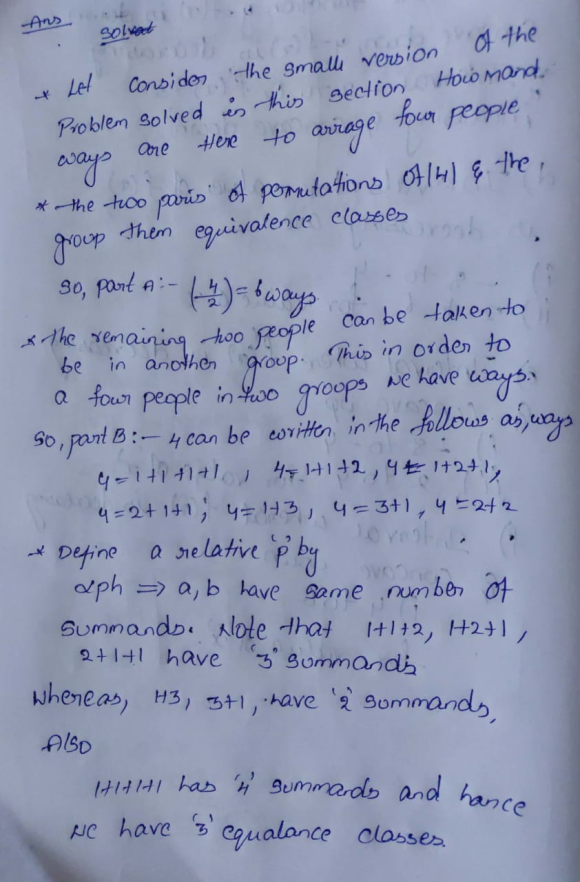 Ans
Solved
* Let Consider the small version of the
Problem solved in this section How mand.
ways are Here to arrage four people
* the two paris of permutations of |4| & the,
group them equivalence classes
So, part A :- (4/2) = 6 ways.
* The remaining two people can be taken to
be in another group. This in order to
a four people in two groups we have ways.
So, part B :- 4 can be written in the follows as, ways
4 = 1+1+1+1, 4 = 1+1+2, 4 = 1+2+1,
4 = 2+1+1; 4 = 1+3, 4 = 3+1, 4 = 2+2
* Define a relative 'p' by
aph ⟹ a, b have same number of
Summands. Note that 1+1+2, 1+2+1,
2+1+1 have '3' summands
whereas, 1+3, 3+1, have '2' summands,
Also
1+1+1+1 has '4' summards and hance
we have '3' equalance classes.